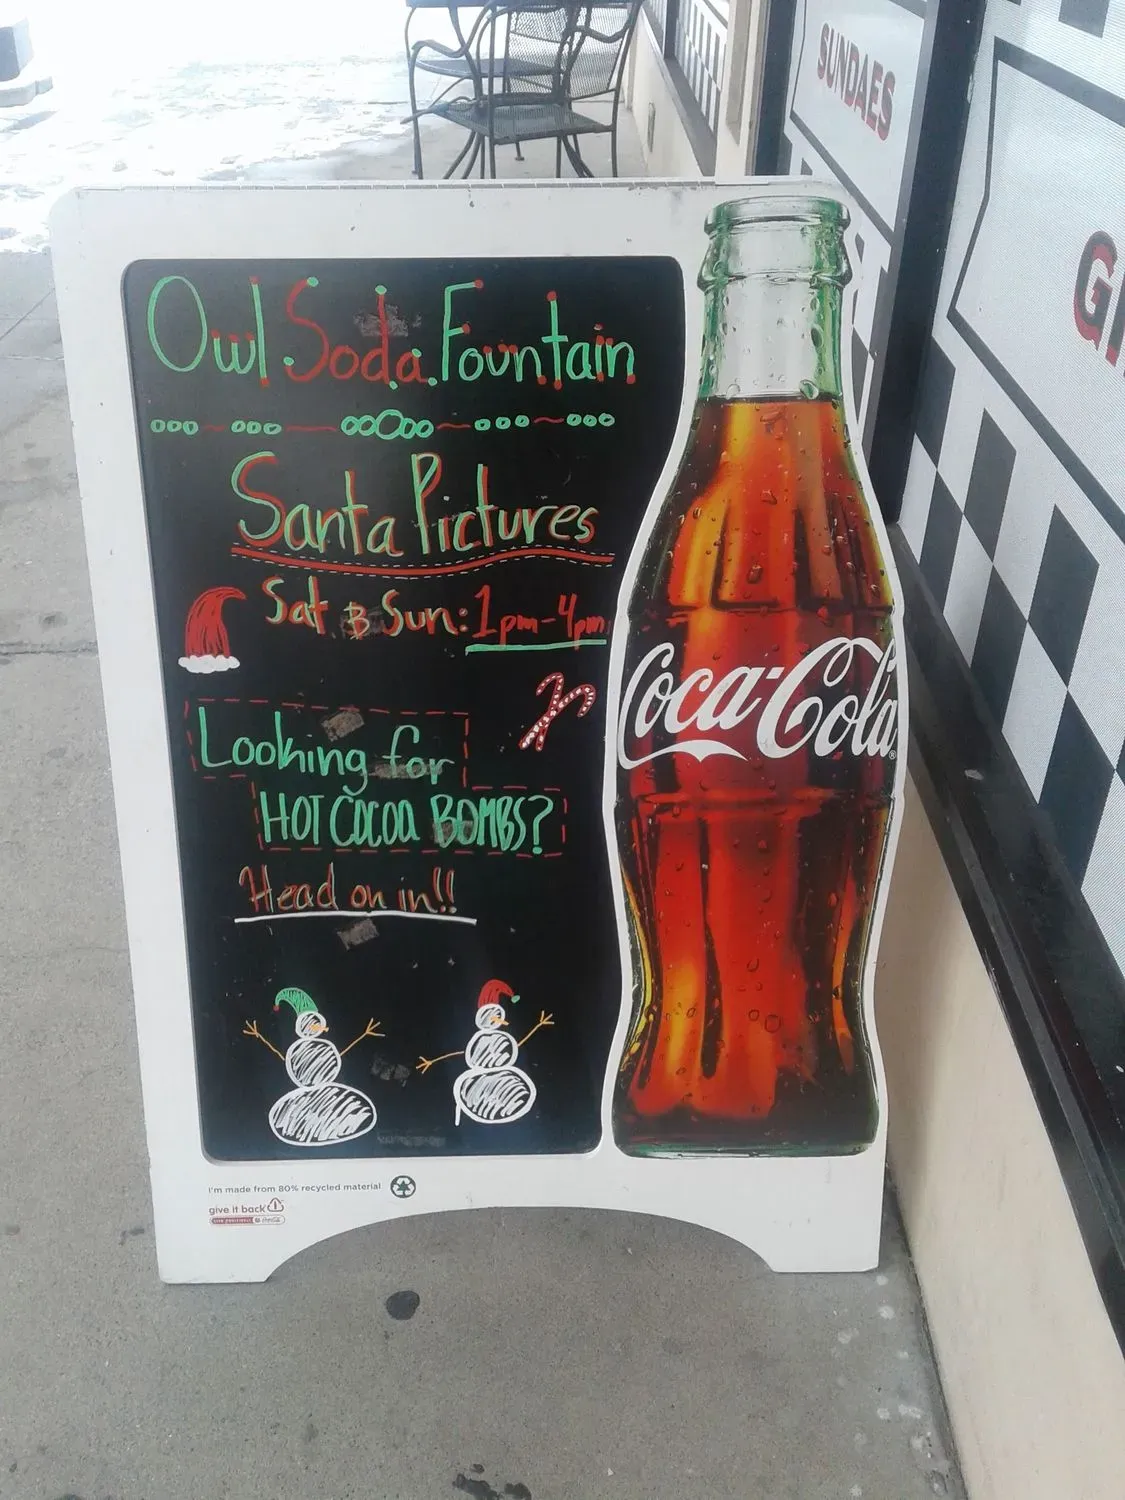 SUNDAES
Owl Soda Fountain
Santa Pictures
Sat & Sun: 1pm-4pm
Looking for
HOT COCOA BOMBS?
Head on in!!
Coca-Cola
I'm made from 80% recycled material
give it back